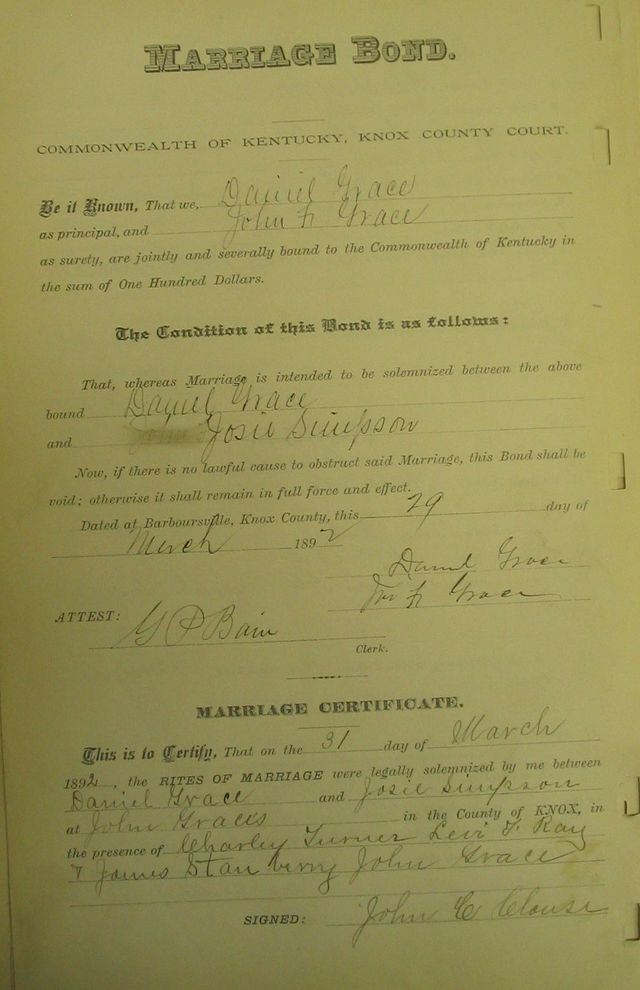 MARRIAGE BOND.
COMMONWEALTH OF KENTUCKY, KNOX COUNTY COURT.
Be it Known, That we, Daniel Grace
as principal, and John F Grace
as surety, are jointly and severally bound to the Commonwealth of Kentucky in
the sum of One Hundred Dollars.
The Condition of this Bond is as follows:
That, whereas Marriage is intended to be solemnized between the above
bound Daniel Grace
and Josie Simpson
Now, if there is no lawful cause to obstruct said Marriage, this Bond shall be
void; otherwise it shall remain in full force and effect.
Dated at Barboursville, Knox County, this 29 day of
March 1892
Daniel Grace
F Grace
ATTEST: G P Bain
Clerk.
MARRIAGE CERTIFICATE.
This is to Certify, That on the 31 day of March
1892, the RITES OF MARRIAGE were legally solemnized by me between
Daniel Grace and Josie Simpson
at John Graces in the County of KNOX, in
the presence of Charley Turner Levi F Ray
James Stanberry John Grace
SIGNED: John C Clouse